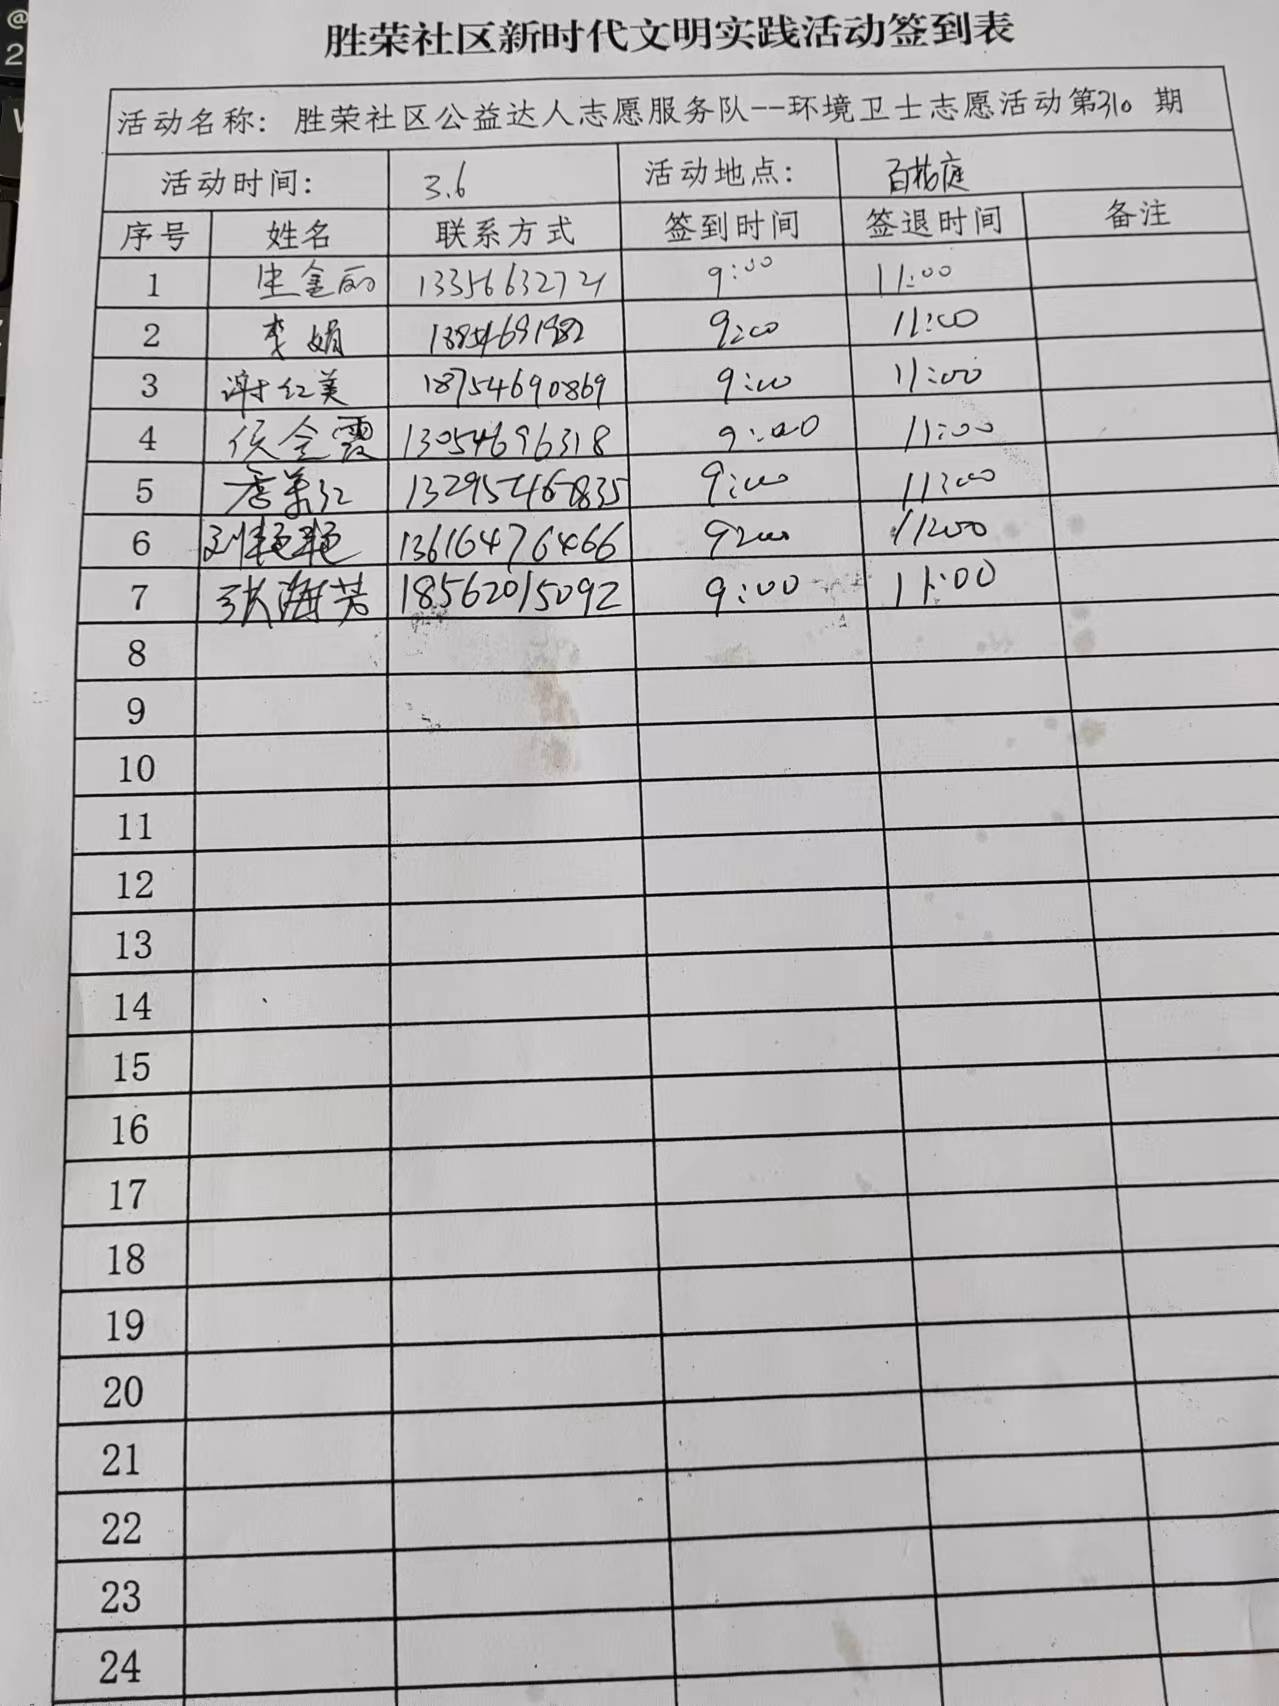 胜荣社区新时代文明实践活动签到表
活动名称：胜荣社区公益达人志愿服务队--环境卫士志愿活动第310 期
活动时间： 3.6 活动地点：
序号 姓名 联系方式 签到时间 签退时间 备注
1 9:00 11:00
2 李娟 9:00 11:00
3 谢红美 18754690869 9:00 11:00
4 侯金霞 13054696318 9:00 11:00
5 9:00 11:00
6 刘艳艳 13616476466 9:00 11:00
7 张海芳 18562015092 9:00 11:00
8
9
10
11
12
13
14
15
16
17
18
19
20
21
22
23
24